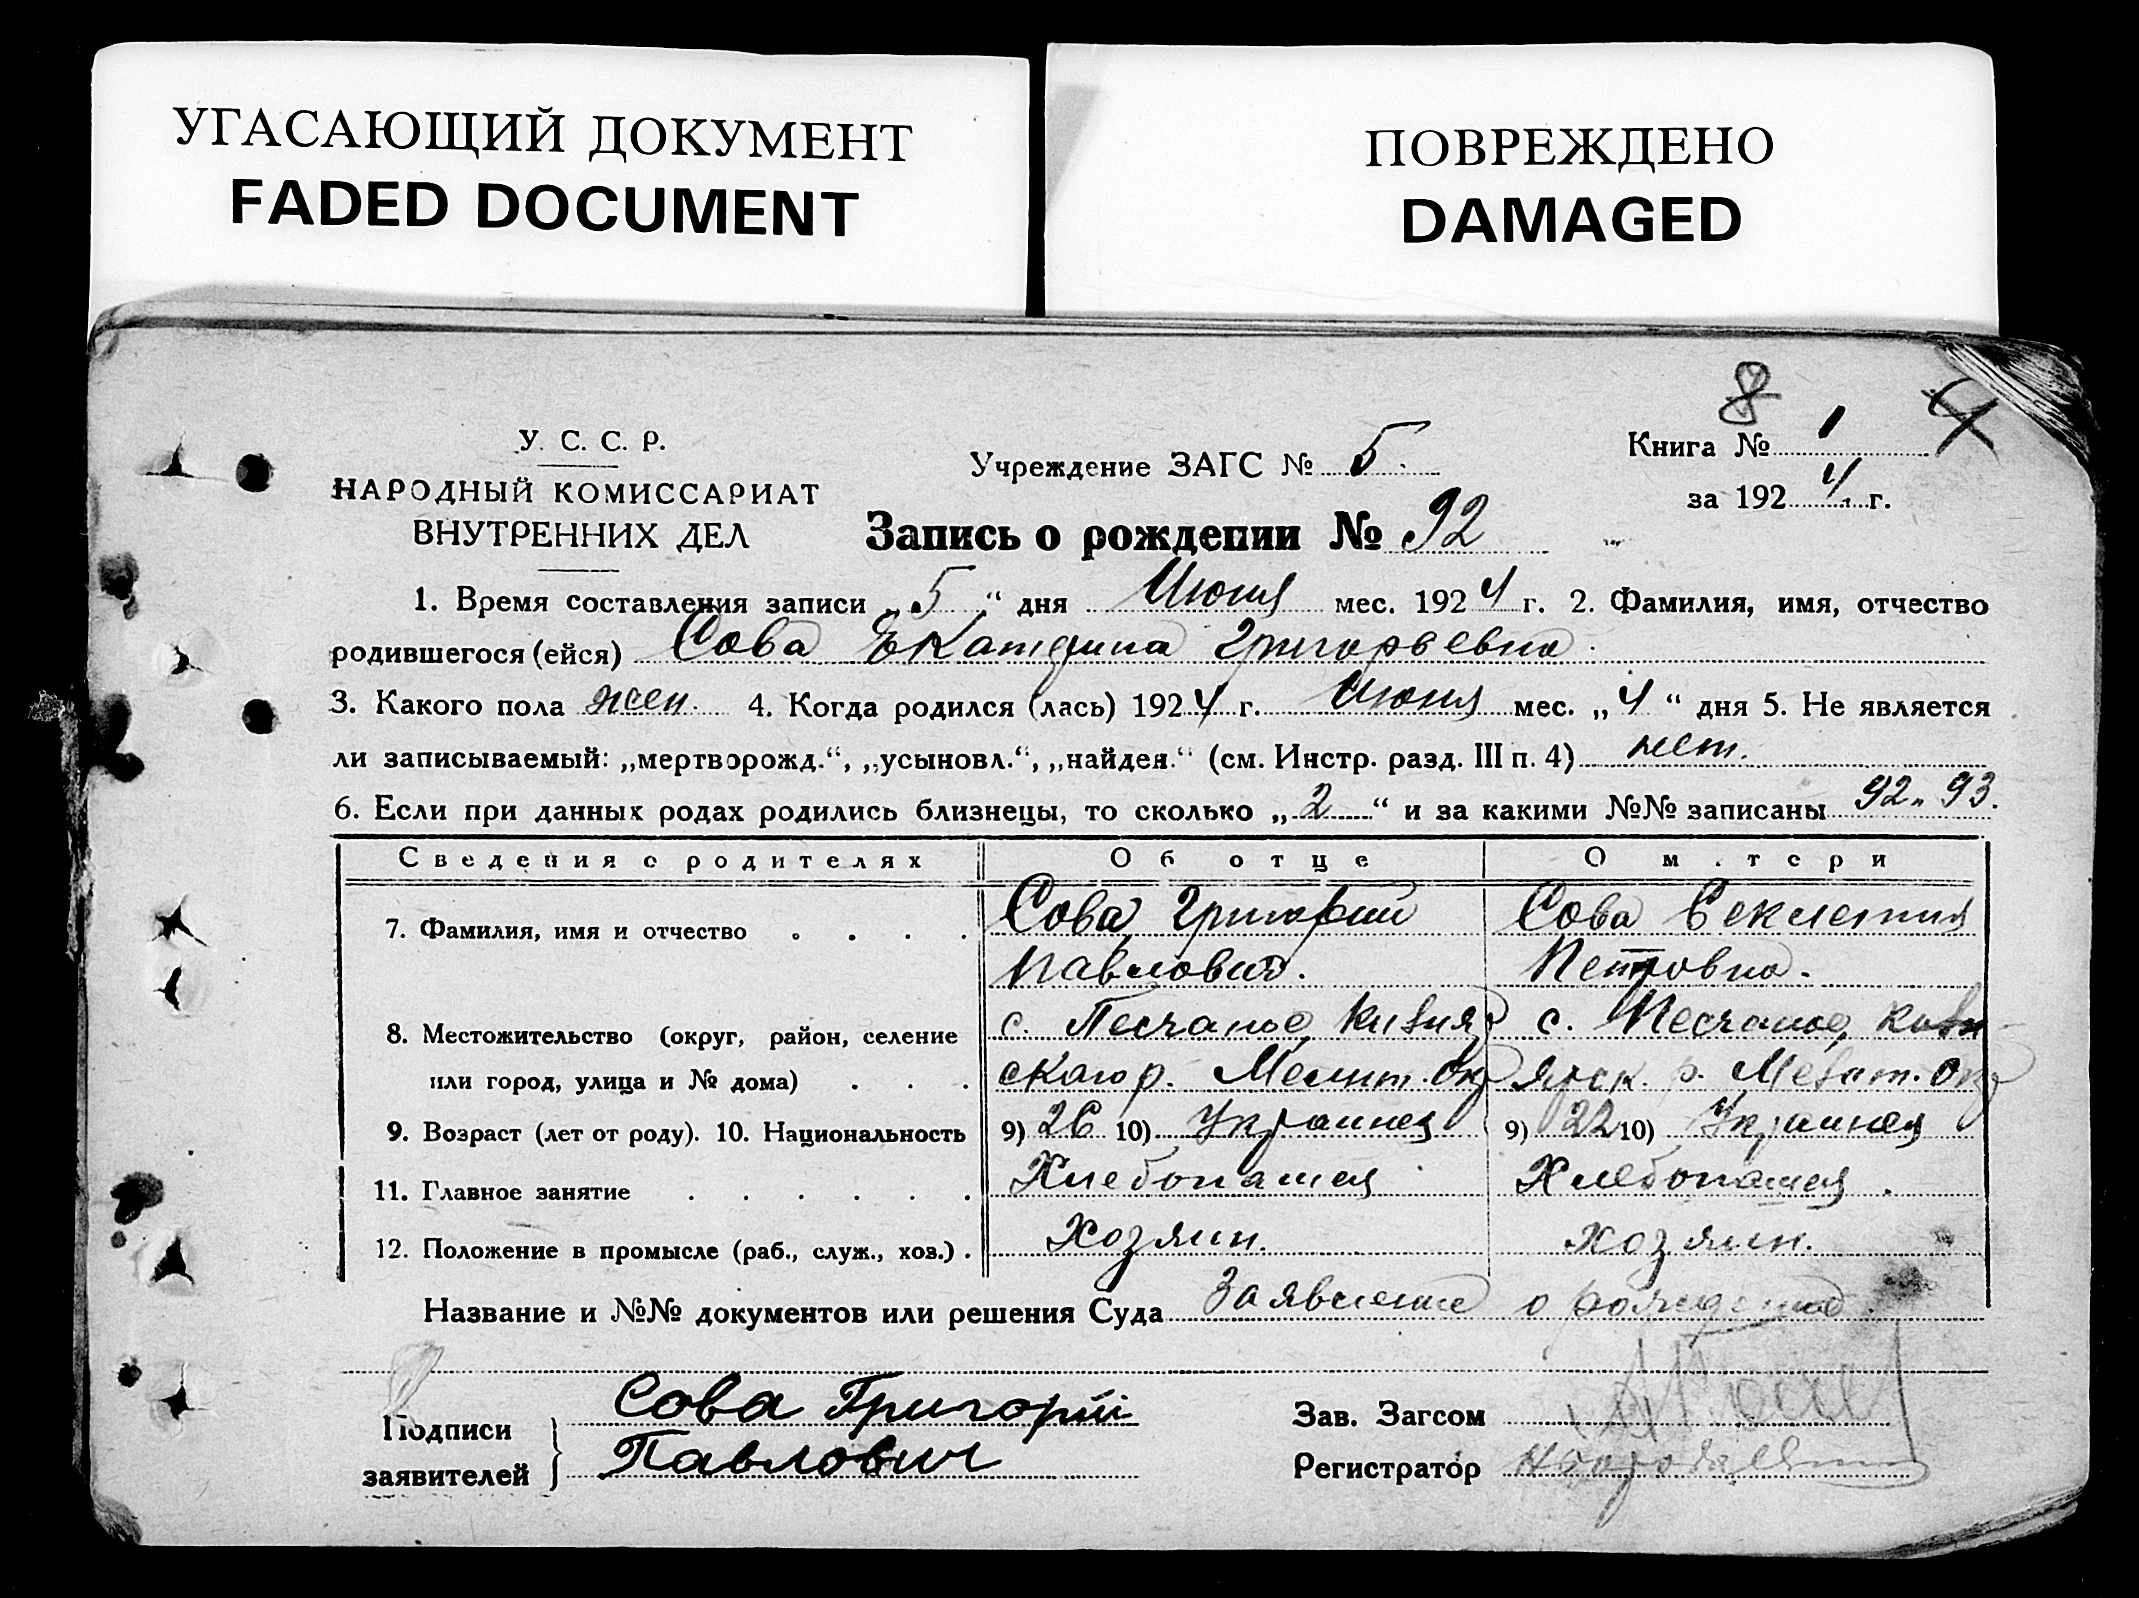 УГАСАЮЩИЙ ДОКУМЕНТ
FADED DOCUMENT
ПОВРЕЖДЕНО
DAMAGED
8
У. С. С. Р.
НАРОДНЫЙ КОМИССАРИАТ
ВНУТРЕННИХ ДЕЛ
Учреждение ЗАГС № 5.
Книга № 1
за 1924 г.
Запись о рождении № 92
1. Время составления записи „5“ дня Июня мес. 1924 г. 2. Фамилия, имя, отчество
родившегося (ейся) Сова Екатерина Григорьевна.
3. Какого пола жен. 4. Когда родился (лась) 1924 г. Июня мес. „4“ дня 5. Не является
ли записываемый: „мертворожд.“, „усыновл.“, „найден.“ (см. Инстр. разд. III п. 4) нет.
6. Если при данных родах родились близнецы, то сколько „2“ и за какими №№ записаны 92 „ 93.
Сведения о родителях Об отце О м.тери
7. Фамилия, имя и отчество . . . . Сова Григорий Сова Секлетия
Павлович. Петровна.
8. Местожительство (округ, район, селение с. Песчаное, с. Песчаное,
или город, улица и № дома) . . . скаго р. Мелит. Окр р. Мелит. Окр
9. Возраст (лет от роду). 10. Национальность 9) 26 10) Украинец 9) 22 10) Украинец
11. Главное занятие . . . . . . Хлебопашец Хлебопашец.
12. Положение в промысле (раб., служ., хоз.) . Хозяин. Хозяин.
Название и №№ документов или решения Суда Заявление о рождении.
Подписи
заявителей
Сова Григорій
Павлович
Зав. Загсом
Регистратор